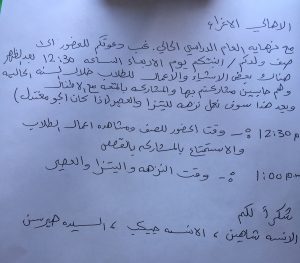 الاهالي الاعزاء
مع نهايه العام الدراسي الحالي. نحب دعوتكم للحضور الى
صف ولدكم / ابنتكم يوم الاربعاء الساعه 12:30 بعد الظهر
هناك بعض الاشياء والاعمال للطلاب خلال السنه الحاليه
وهم حابيين مشاركتكم بها والمشاركه بالمتعه مع الاطفال
وبعد هذا سوف نعمل نزهه للبيتزا والعصير (اذا كان الجو معتدل)
12:30 pm :- وقت الحضور للصف ومشاهده اعمال الطلاب
والاستمتاع بالمشاركه بالقصص
1:00 pm :- وقت النزهه والبيتزا والعصير
شكراً لكم
الانسه شاهين ، الانسه جيكب ، السيده